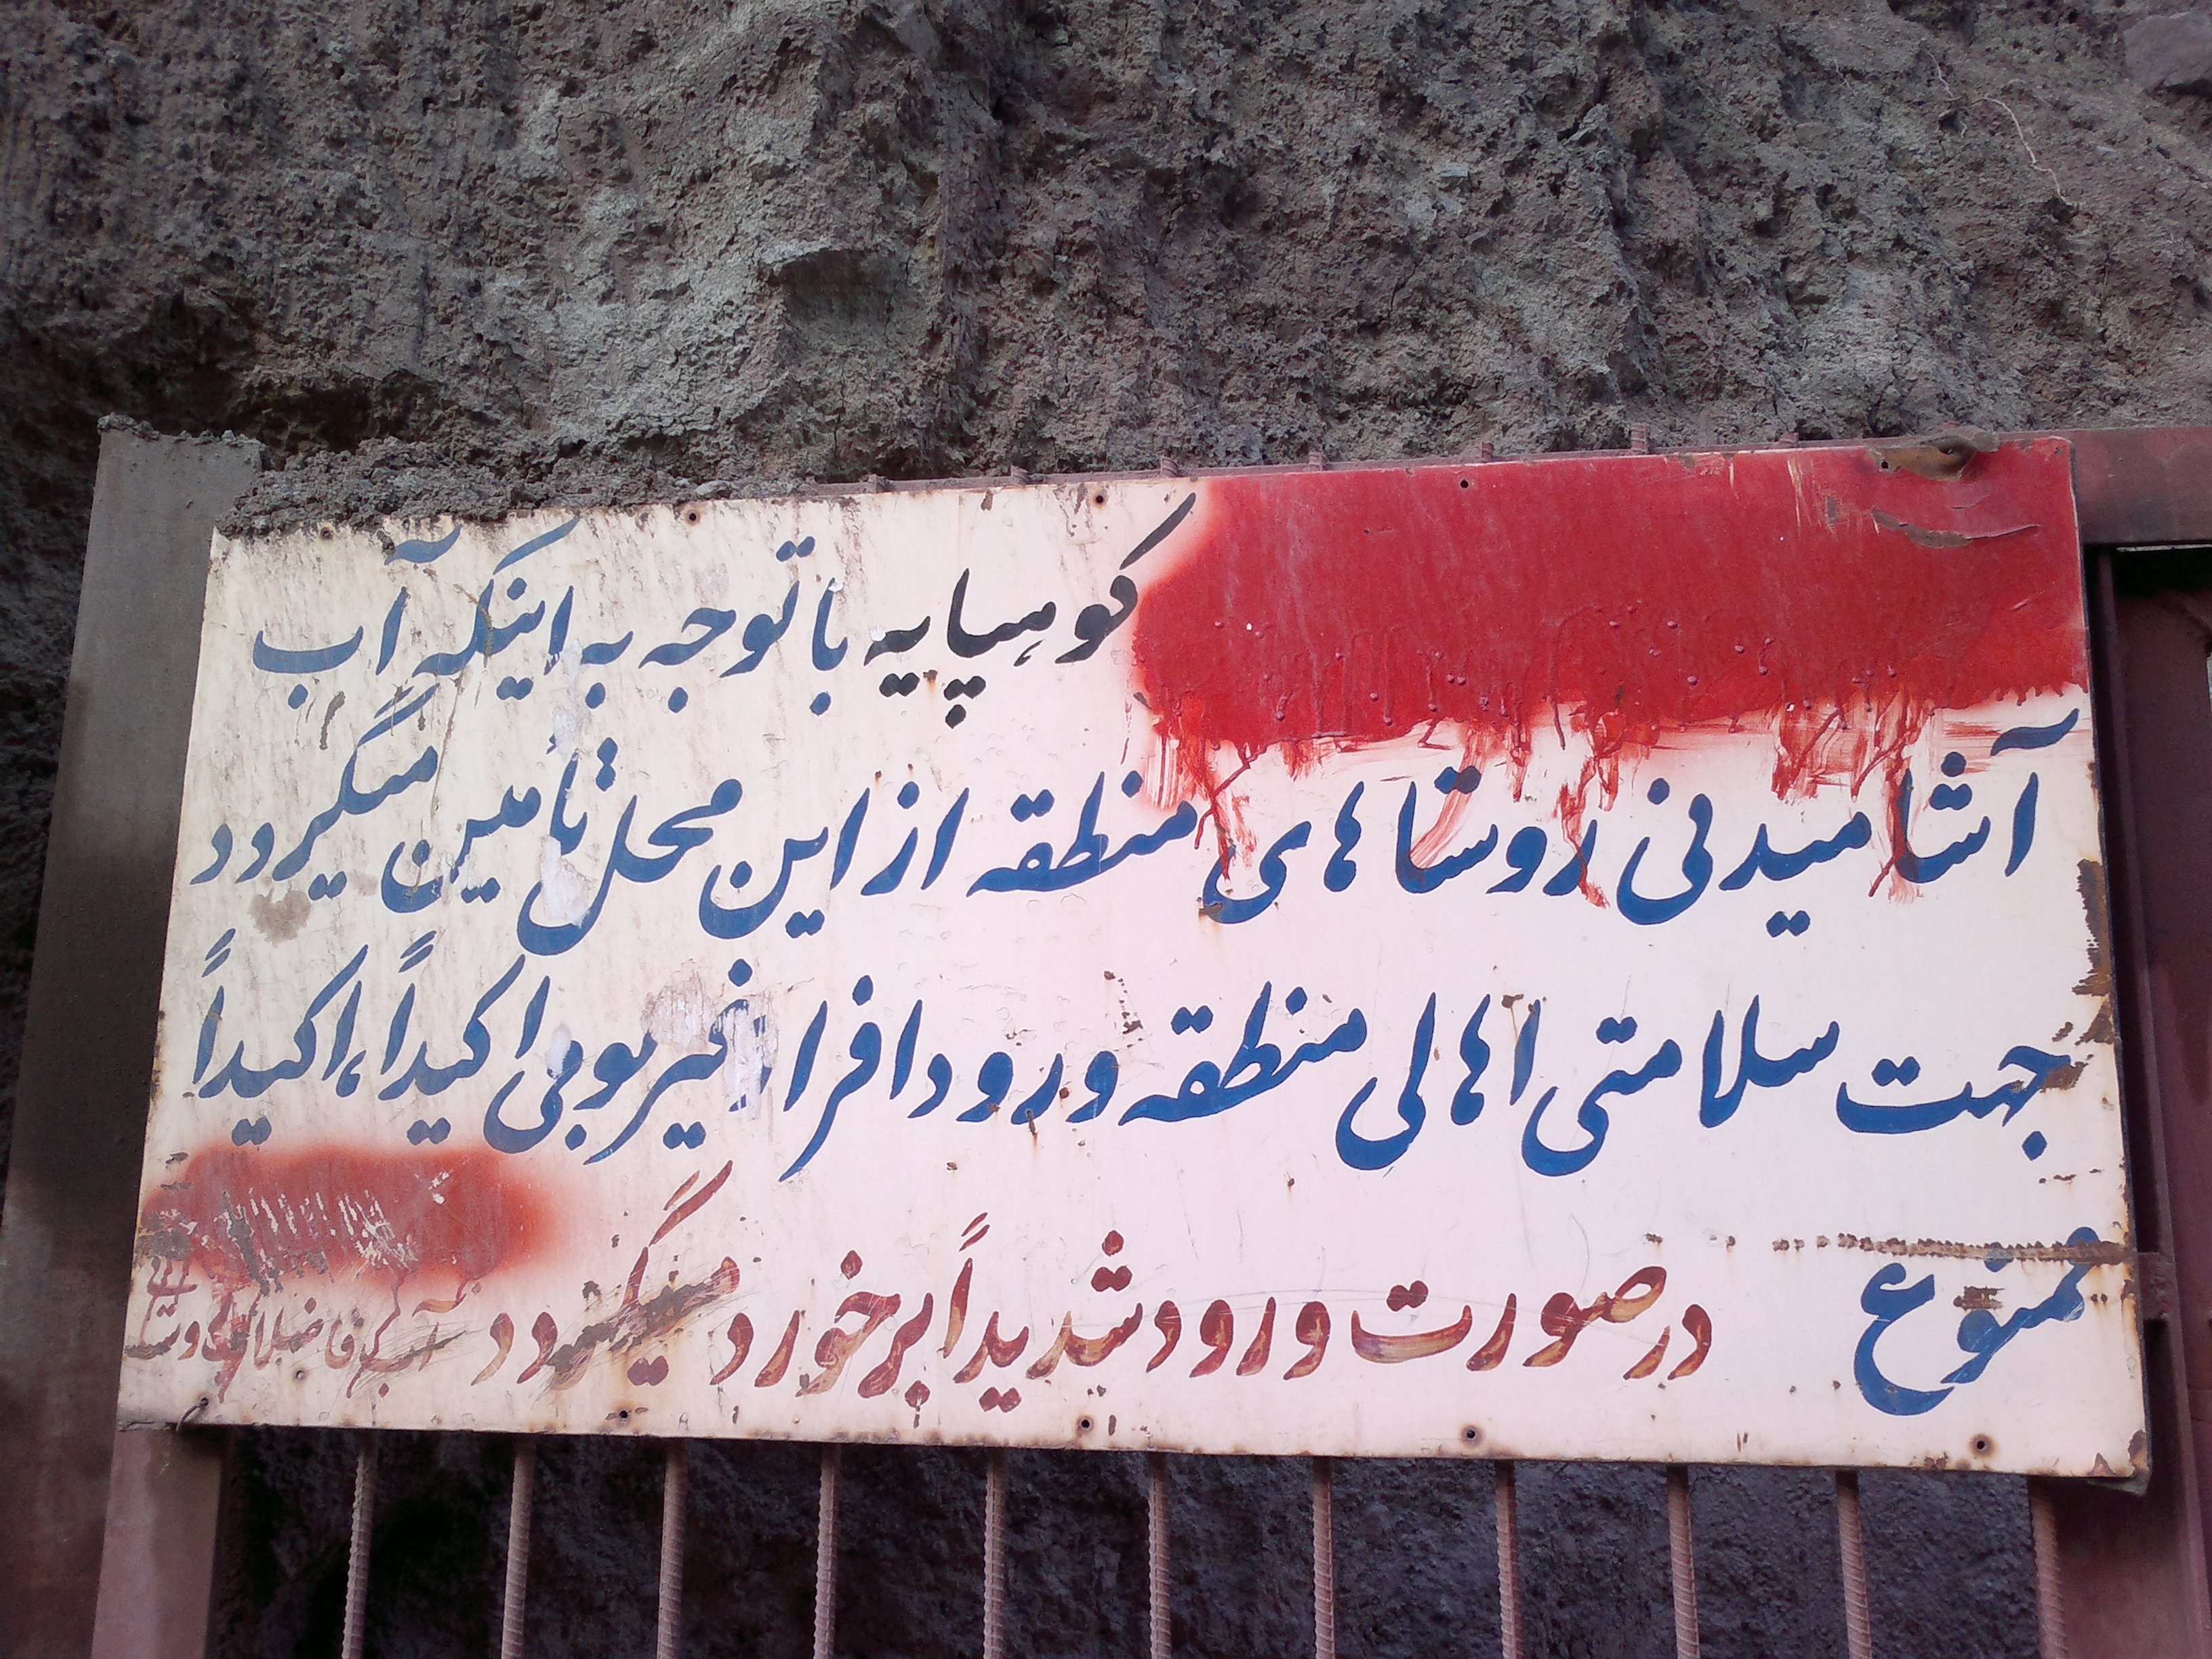 کوهپایه با توجه به اینکه آب
آشامیدنی روستاهای منطقه از این محل تأمین میگیردد
جهت سلامتی اهالی منطقه ورود افراد غیر بومی اکیداً، اکیداً
ممنوع در صورت ورود شدیداً برخورد میگیردد